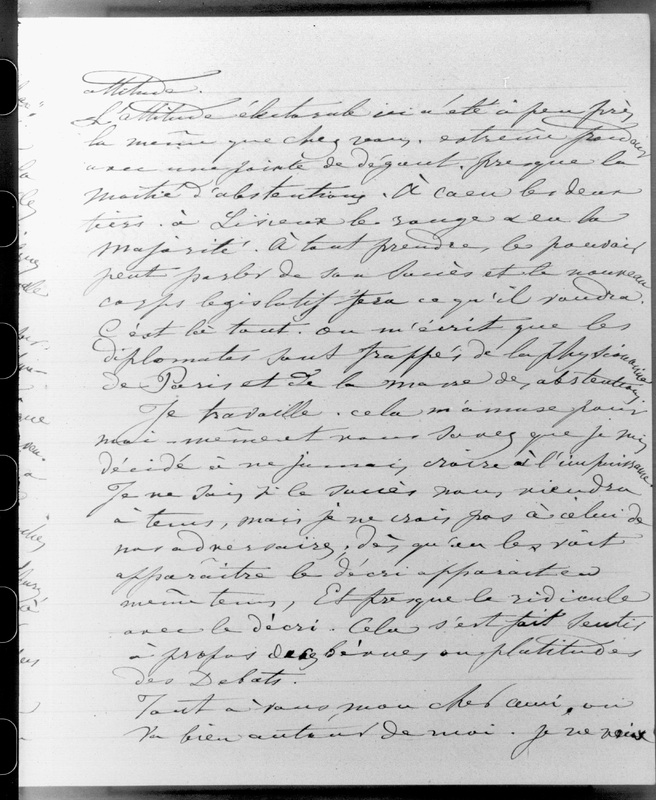 attitude.
L'attitude électorale ici a été à peu près
la même que chez vous. extrême froideur
avec une pointe de dégout. presque la
moitié d'abstentions. À Caen les deux
tiers. à Lisieux le rouge a eu la
majorité. À tout prendre, le pouvoir
peut parler de son succès et le nouveau
corps legislatif fera ce qu'il voudra.
C'est là tout. On m'écrit que les
diplomates sont frappés de la physionomie
de Paris et de la masse des abstentions.
Je travaille. cela m'amuse pour
moi-même et vous savez que je suis
décidé à ne jamais croire à l'impuissance.
Je ne sais si le succès nous viendra
à tems, mais je ne crois pas à celui de
nos adversaires; dès qu'on les voit
apparaître le décri apparait en
même tems, Et presque le ridicule
avec le décri. Cela s'est fait sentir
à propos des bévues ou platitudes
des Debats.
Tout à vous mon cher ami, on
va bien autour de moi. Je ne veux